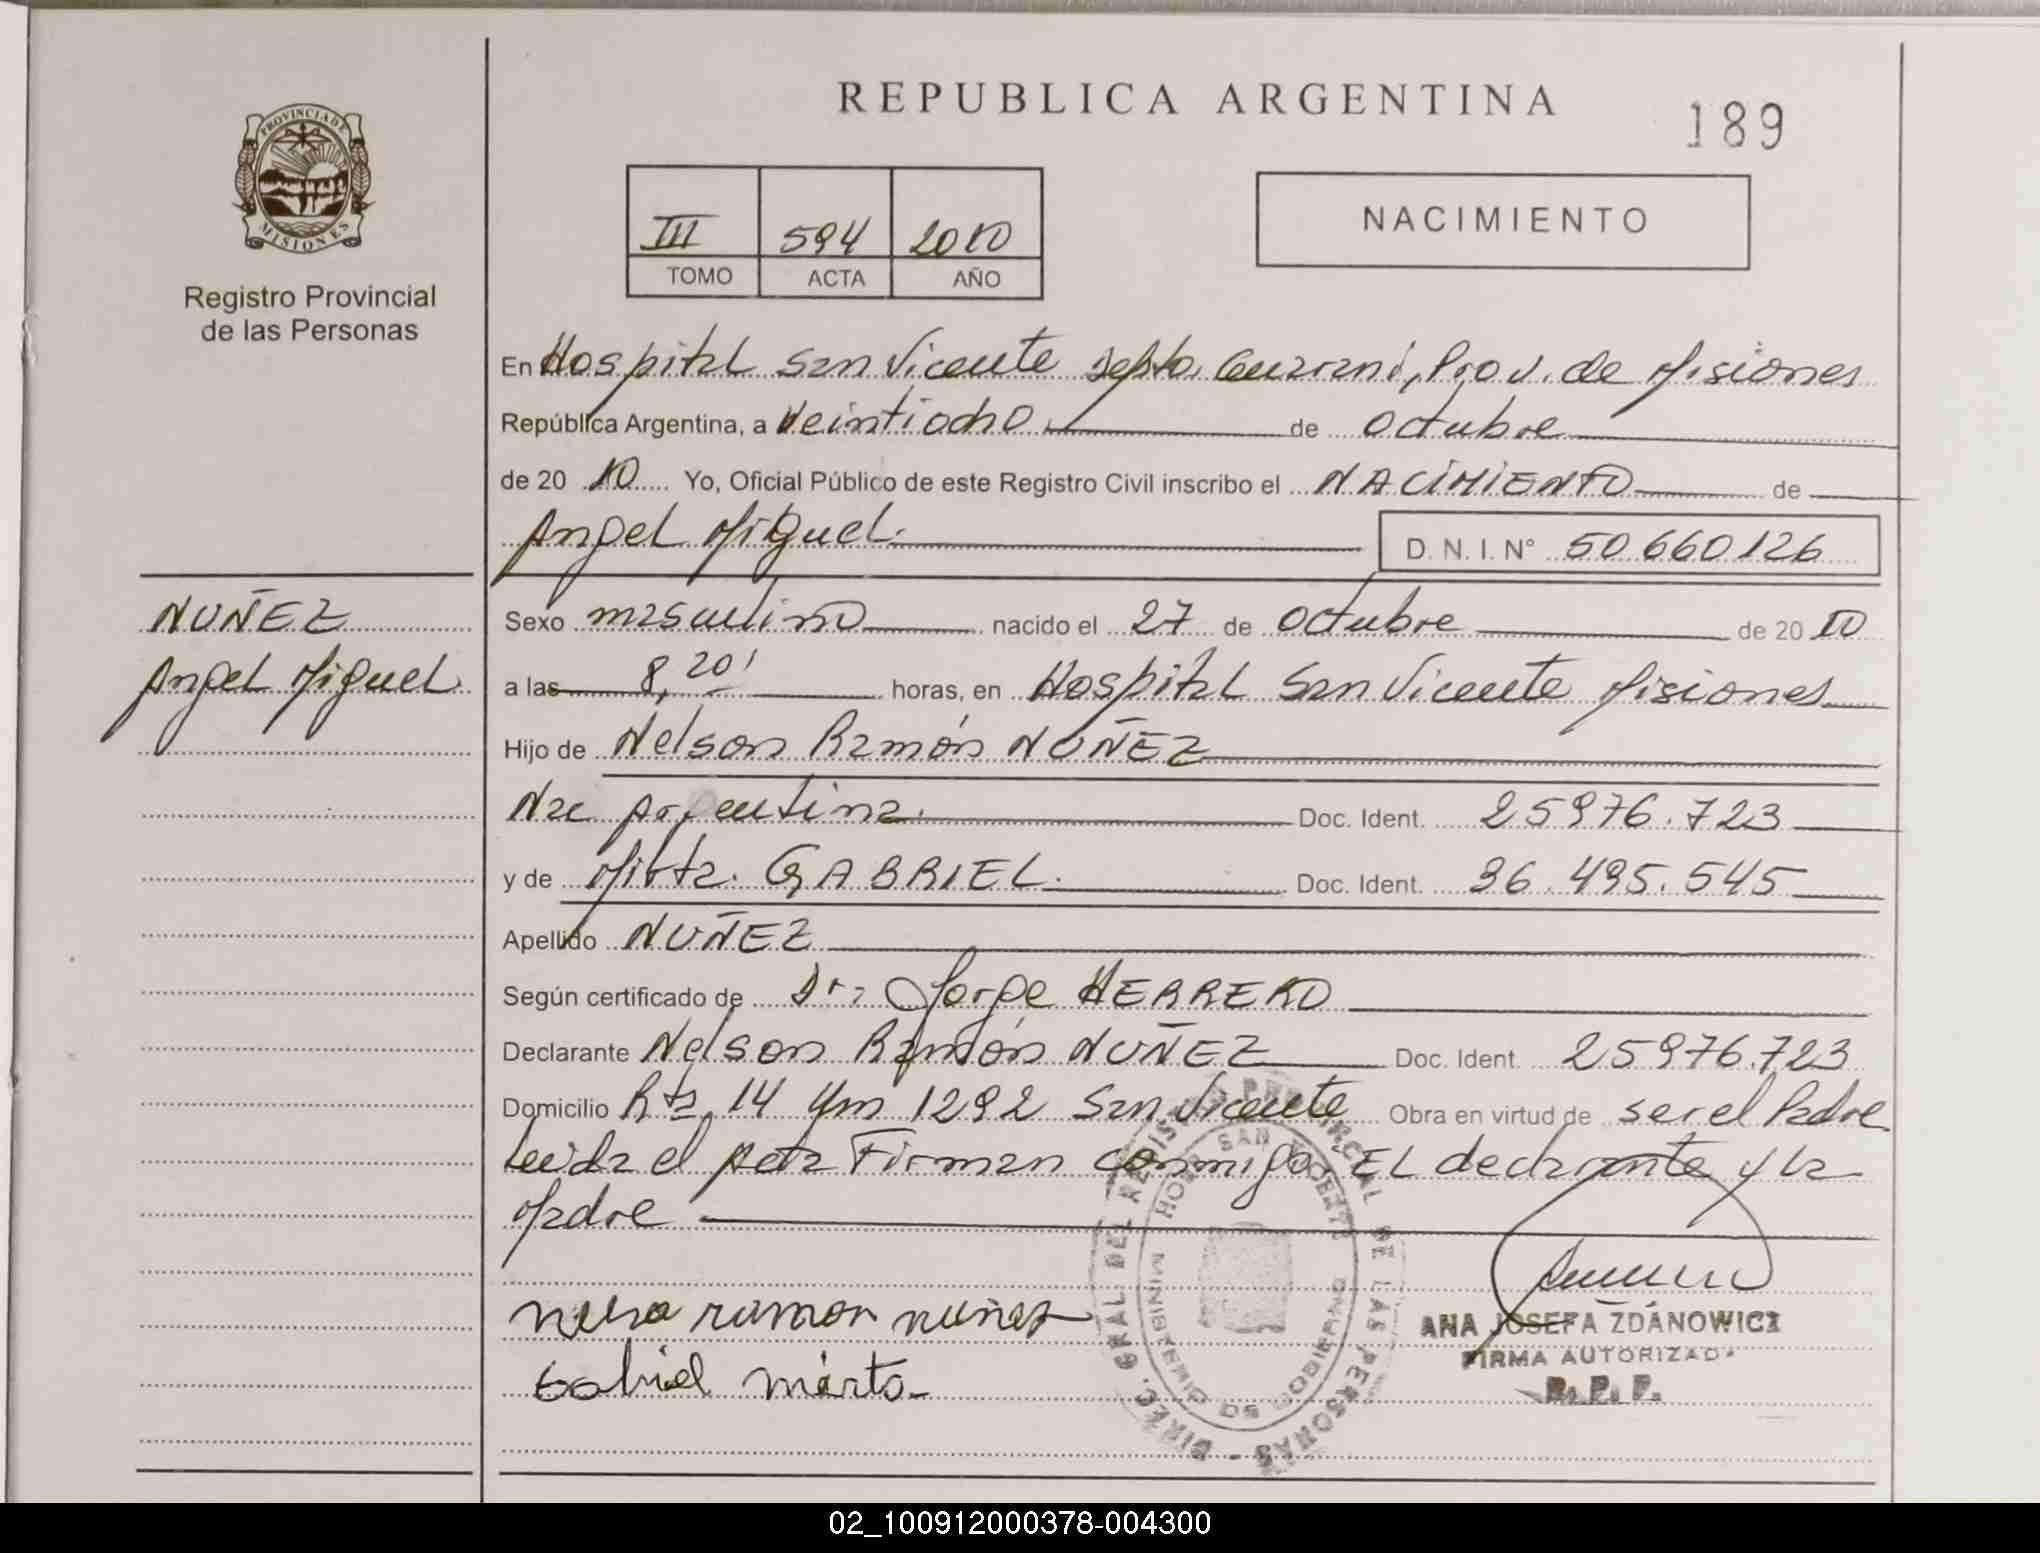 REPUBLICA ARGENTINA
189
PROVINCIA DE
MISIONES
Registro Provincial
de las Personas
III 594 2010
TOMO ACTA AÑO
NACIMIENTO
En Hospital San Vicente Depto. Guarani, Prov. de Misiones
República Argentina, a Veintiocho de Octubre
de 20 10 Yo, Oficial Público de este Registro Civil inscribo el NACIMIENTO de
Angel Miguel. D. N. I. N° 50660126
NUÑEZ
Angel Miguel.
Sexo masculino nacido el 27 de Octubre de 20 10
a las 8,20' horas, en Hospital San Vicente Misiones
Hijo de Nelson Ramón NUÑEZ
Nac Argentina. Doc. Ident. 25976.723
y de Mirta. GABRIEL. Doc. Ident. 36.495.545
Apellido NUÑEZ
Según certificado de Dr: Jorge HERRERO
Declarante Nelson Ramón NUÑEZ Doc. Ident. 25976.723
Domicilio Rta. 14 Km 1292 San Vicente Obra en virtud de ser el Padre
Leida el Acta Firman conmigo, EL declarante y la
Madre
ramon nuñez
Gabriel mirta
ANA JOSEFA ZDANOWICZ
FIRMA AUTORIZADA
R. P. P.
DIREC. GRAL DEL REGISTRO PROVINCIAL DE LAS PERSONAS
HOSP SAN VICENTE
MINISTERIO DE GOBIERNO
02_100912000378-004300